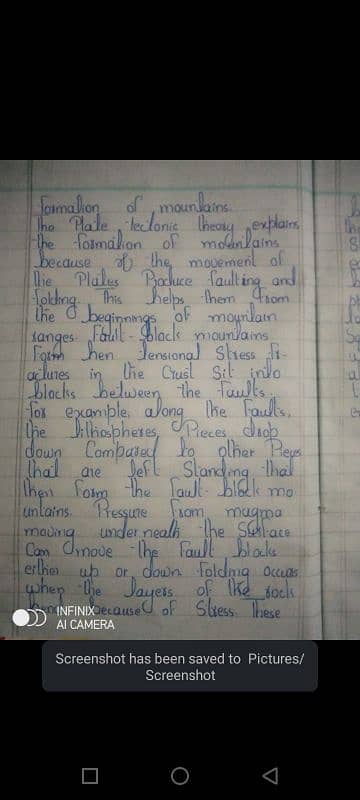 formation of mountains.
The Plate tectonic theory explains
the formation of mountains
because of the movement of
the Plates Produce faulting and
folding. This helps them from
the beginnings of mountain
ranges. Fault-block mountains
Form hen Tensional Stress fr-
actures in the Crust Sit into
blocks between the faults.
for example, along the faults,
the lithospheres Pieces drop
down Compared to other Pieces
that are left Standing that
then form the fault-block mo
untains. Pressure from magma
moving underneath the Surface
Can move the fault blocks
erther up or down. folding occurs
when the layers of the rock
because of Stress. These
INFINIX
AI CAMERA
Screenshot has been saved to Pictures/
Screenshot